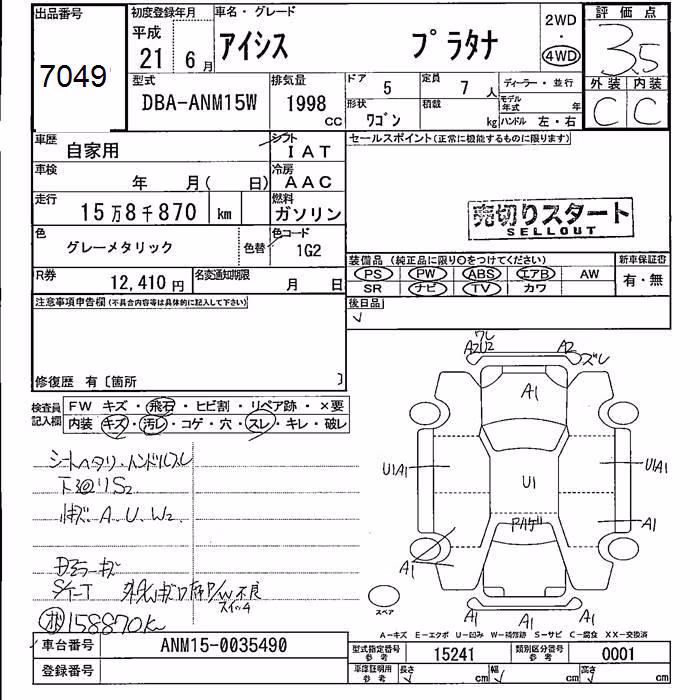 出品番号 初度登録年月 車名・グレード 2WD 評価点
7049 平成 21 6月 アイシス プラタナ ・ 4WD 3.5
型式 排気量 ドア 5 定員 7人 ディーラー・並行 外装 内装
DBA-ANM15W 1998cc 形状 ワゴン 積載 kg モデル年式 年 ハンドル 左・右 C C
車歴 自家用 シフト IAT セールスポイント(正常に機能するものに限ります)
車検 年 月( 日) 冷房 AAC
走行 15万8千870 km 燃料 ガソリン
売切りスタート
SELLOUT
色 グレーメタリック 色替 色コード 1G2
装備品(純正品に限り○をつけてください) 新車保証書
PS PW ABS エアB AW 有・無
SR ナビ TV カワ
R券 12,410円 名変通知期限 月 日
注意事項申告欄(不具合内容等は具体的に記入して下さい) 後日品
修復歴 有〔箇所 〕
検査員記入欄 FW キズ・飛石・ヒビ割・リペア跡・×要
内装 キズ・汚レ・コゲ・穴・スレ・キレ・破レ
シートヘタリ・ハンドルスレ
S2
キズ A.U.W2
158870km
ワレ
A2U2 A2 ズレ
A1
U1A1 U1A1
U1
A1
A1
A1 A1
A1
スペア
A-キズ E-エクボ U-凹み W-補修跡 S-サビ C-腐食 XX-交換済
車台番号 ANM15-0035490
型式指定番号 参考 15241 類別区分番号 参考 0001
登録番号
車庫証明用 参考 長さ cm 幅 cm 高さ cm